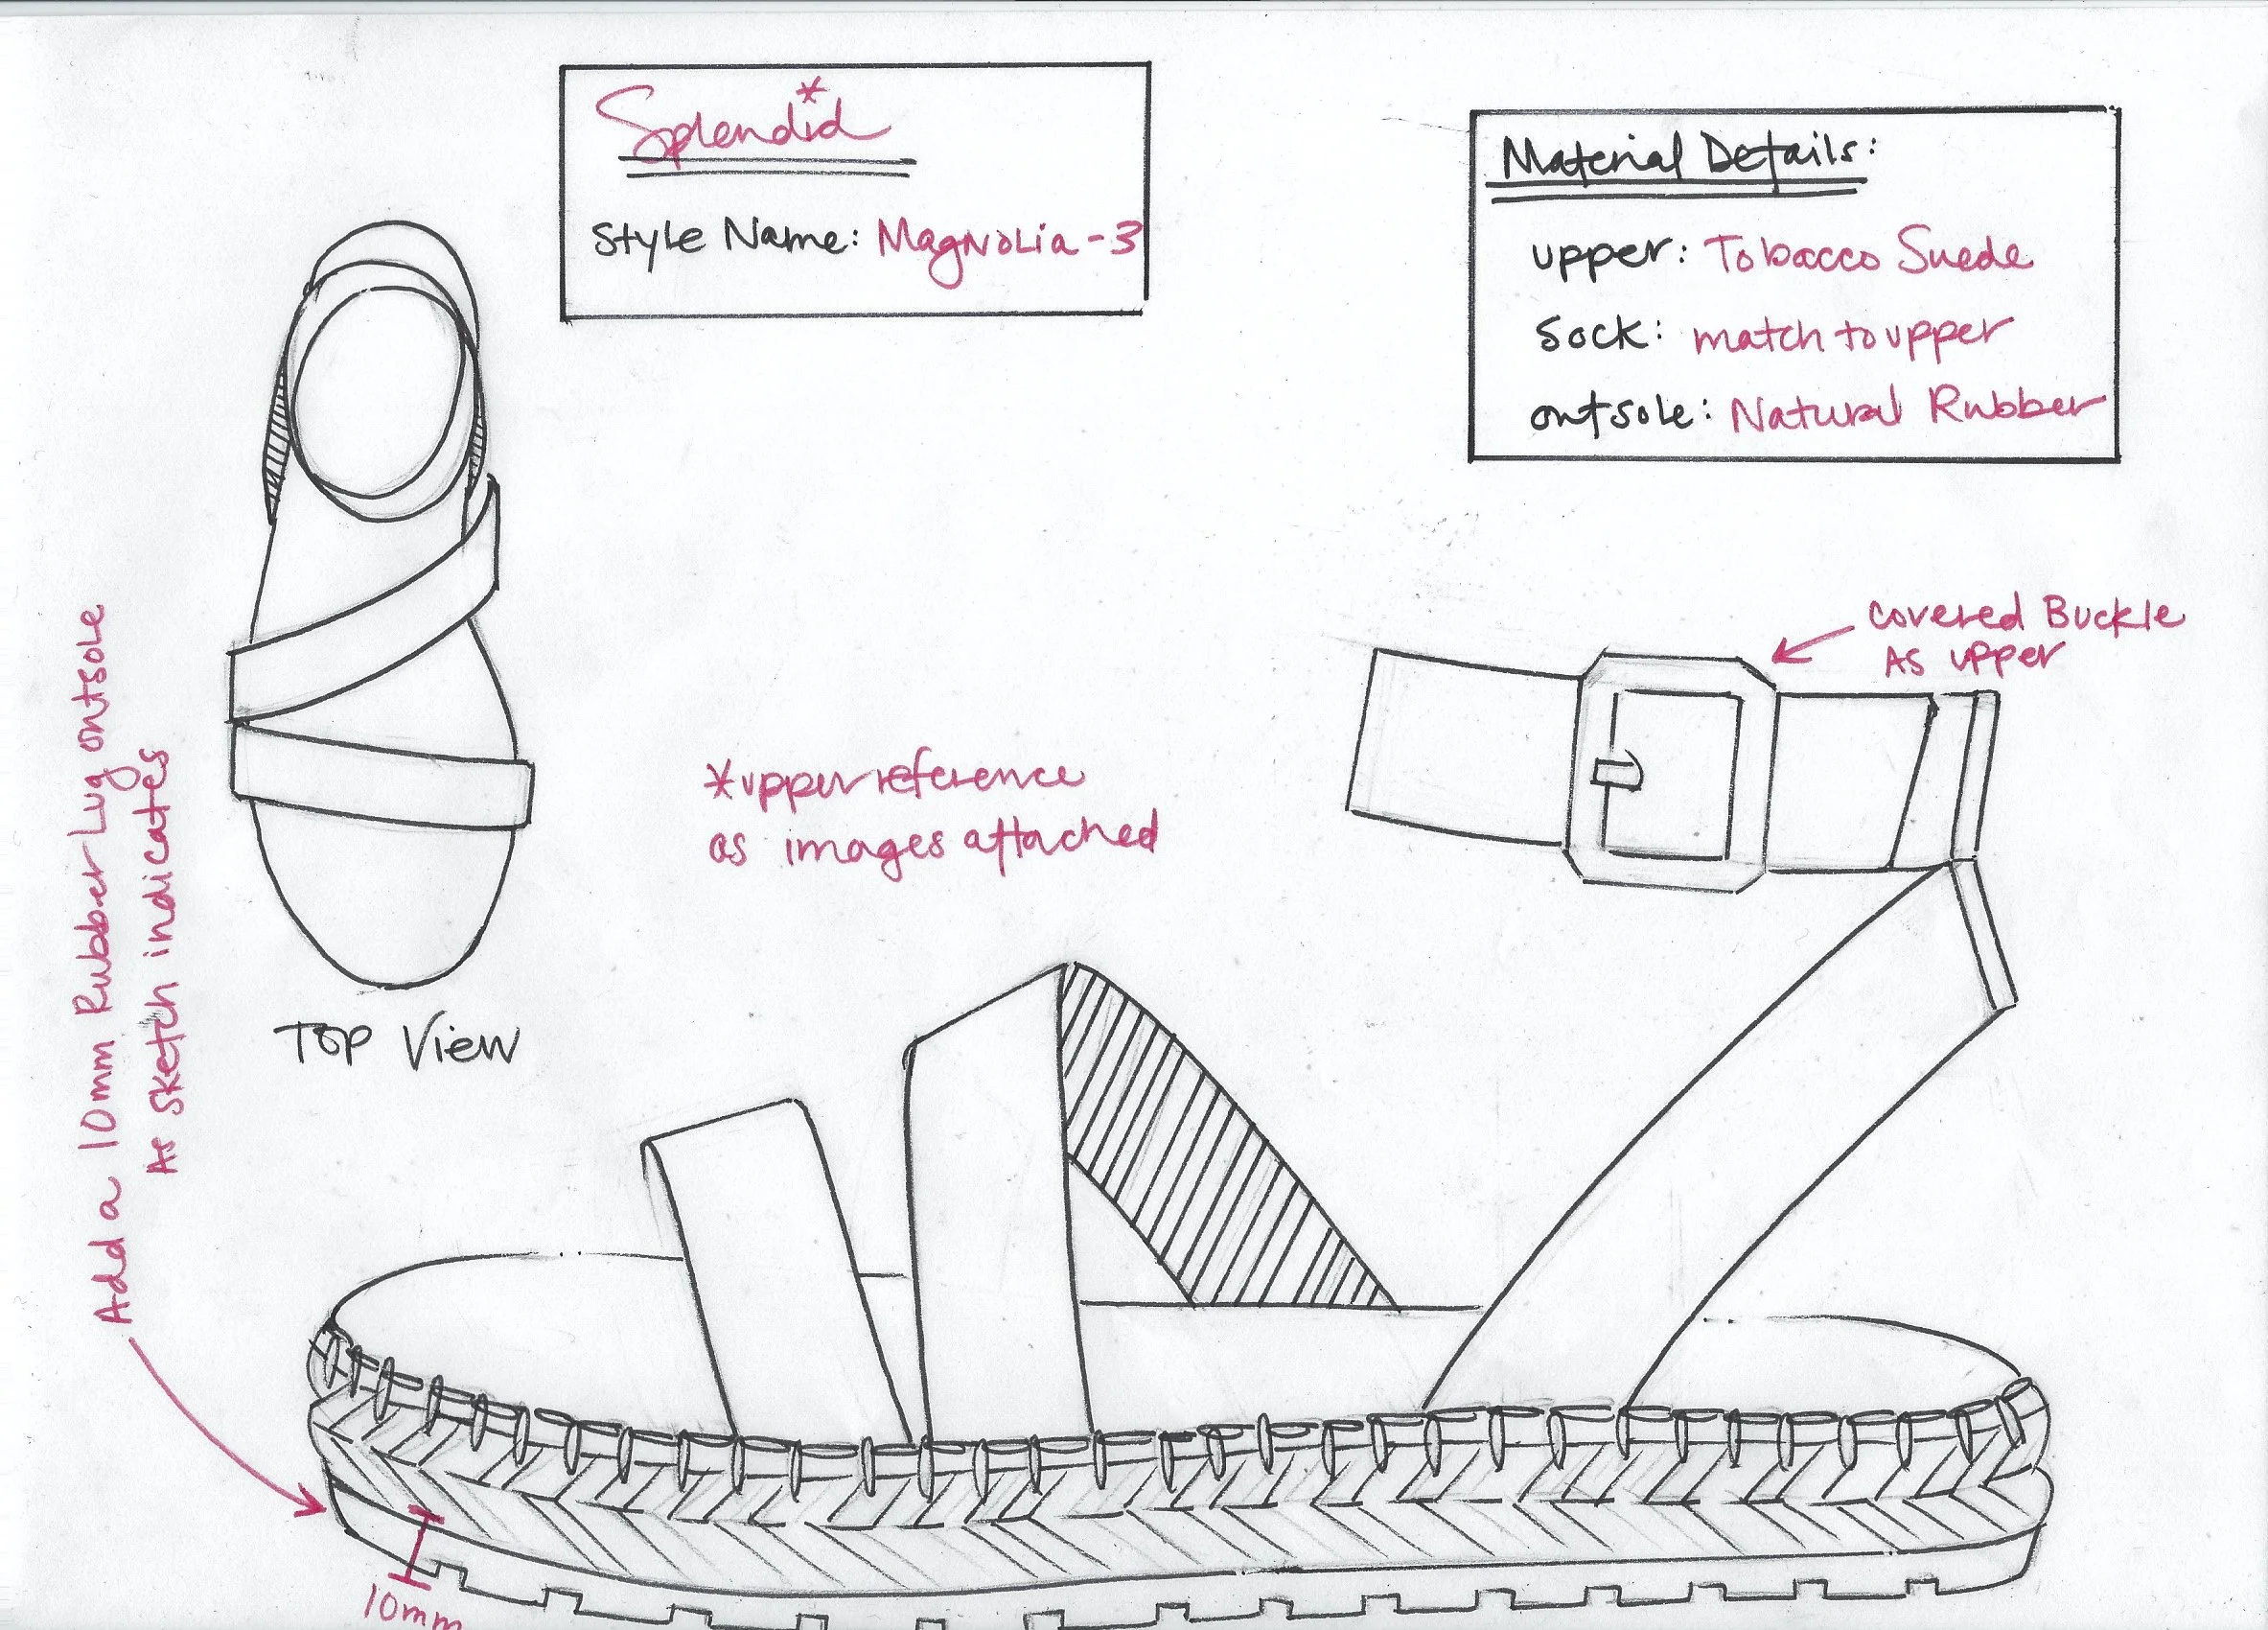 Splendid*
Style Name: Magnolia-3
Material Details:
upper: Tobacco Suede
Sock: match to upper
outsole: Natural Rubber
covered Buckle
As upper
*upper reference
as images attached
Top View
Add a 10mm Rubber Lug outsole
As sketch indicates
10mm